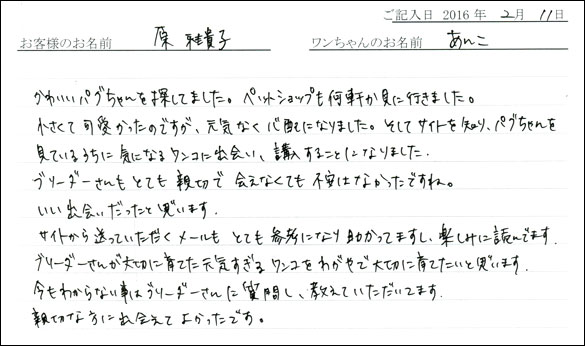 ご記入日 2016年 2月 11日
お客様のお名前 原 雅貴子 ワンちゃんのお名前 あんこ
かわいいパグちゃんを探してました。ペットショップも何軒か見に行きました。
小さくて可愛かったのですが、元気なく心配になりました。そしてサイトを知り、パグちゃんを
見ているうちに気になるワンコに出会い、購入することになりました.
ブリーダーさんもとても親切で会えなくても不安はなかったですね。
いい出会いだったと思います.
サイトから送っていただくメールもとても参考になり助かってますし、楽しみに読んでます.
ブリーダーさんが大切に育てた元気すぎるワンコをわがやで大切に育てたいと思います.
今もわからない事はブリーダーさんに質問し、教えていただいてます.
親切な方に出会えてよかったです。